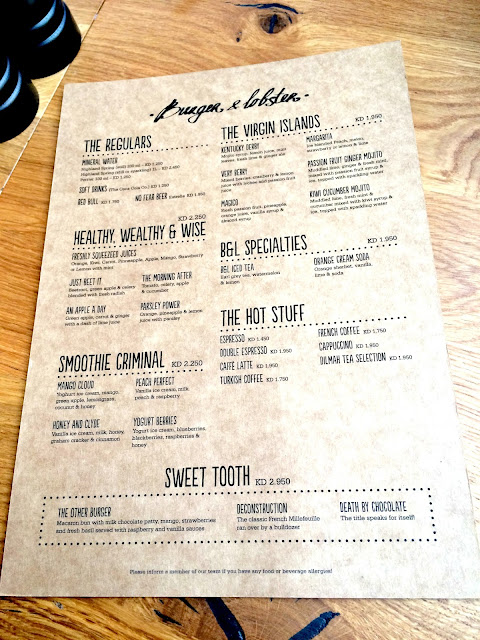 Burger & lobster
THE REGULARS
MINERAL WATER
SOFT DRINKS
RED BULL KD 1.750
NO FEAR BEER
KD 2.250
HEALTHY, WEALTHY & WISE
FRESHLY SQUEEZED JUICES
Orange, Kiwi, Carrot, Pineapple, Apple, Mango, Strawberry
or Lemon with mint
JUST BEET IT
Beetroot, green apple & celery
blended with fresh radish
THE MORNING AFTER
Tomato, celery, apple
& cucumber
AN APPLE A DAY
Green apple, carrot & ginger
with a dash of lime juice
PARSLEY POWER
Orange, pineapple & lemon
juice with parsley
SMOOTHIE CRIMINAL KD 2.250
MANGO CLOUD
Yoghurt ice cream, mango,
green apple, lemongrass,
coconut & honey
PEACH PERFECT
Vanilla ice cream, milk,
peach & raspberry
HONEY AND CLYDE
Vanilla ice cream, milk, honey,
graham cracker & cinnamon
YOGURT BERRIES
Yogurt ice cream, blueberries,
blackberries, raspberries &
honey
THE VIRGIN ISLANDS
KD 1.950
KENTUCKY DERBY
MARGARITA
VERY BERRY
Mixed berries, cranberry & lemon
PASSION FRUIT GINGER MOJITO
MAGICO
Fresh passion fruit, pineapple,
orange juice, vanilla syrup &
KIWI CUCUMBER MOJITO
Muddled lime, fresh mint &
cucumber mixed with kiwi syrup &
ice, topped with sparkling water
B&L SPECIALTIES
KD 1.950
B&L ICED TEA
Earl grey tea, watermelon
& lemon
ORANGE CREAM SODA
Orange sherbet, vanilla,
lime & soda
THE HOT STUFF
ESPRESSO KD 1.450
DOUBLE ESPRESSO KD 1.950
CAFFE LATTE KD 1.950
TURKISH COFFEE KD 1.750
FRENCH COFFEE KD 1.750
CAPPUCCINO KD 1.950
DILMAH TEA SELECTION KD 1.950
SWEET TOOTH KD 2.950
THE OTHER BURGER
Macaron bun with milk chocolate patty, mango, strawberries
and fresh basil served with raspberry and vanilla sauces.
DECONSTRUCTION
The classic French Millefeuille
ran over by a bulldozer
DEATH BY CHOCOLATE
The title speaks for itself!
Please inform a member of our team if you have any food or beverage allergies!